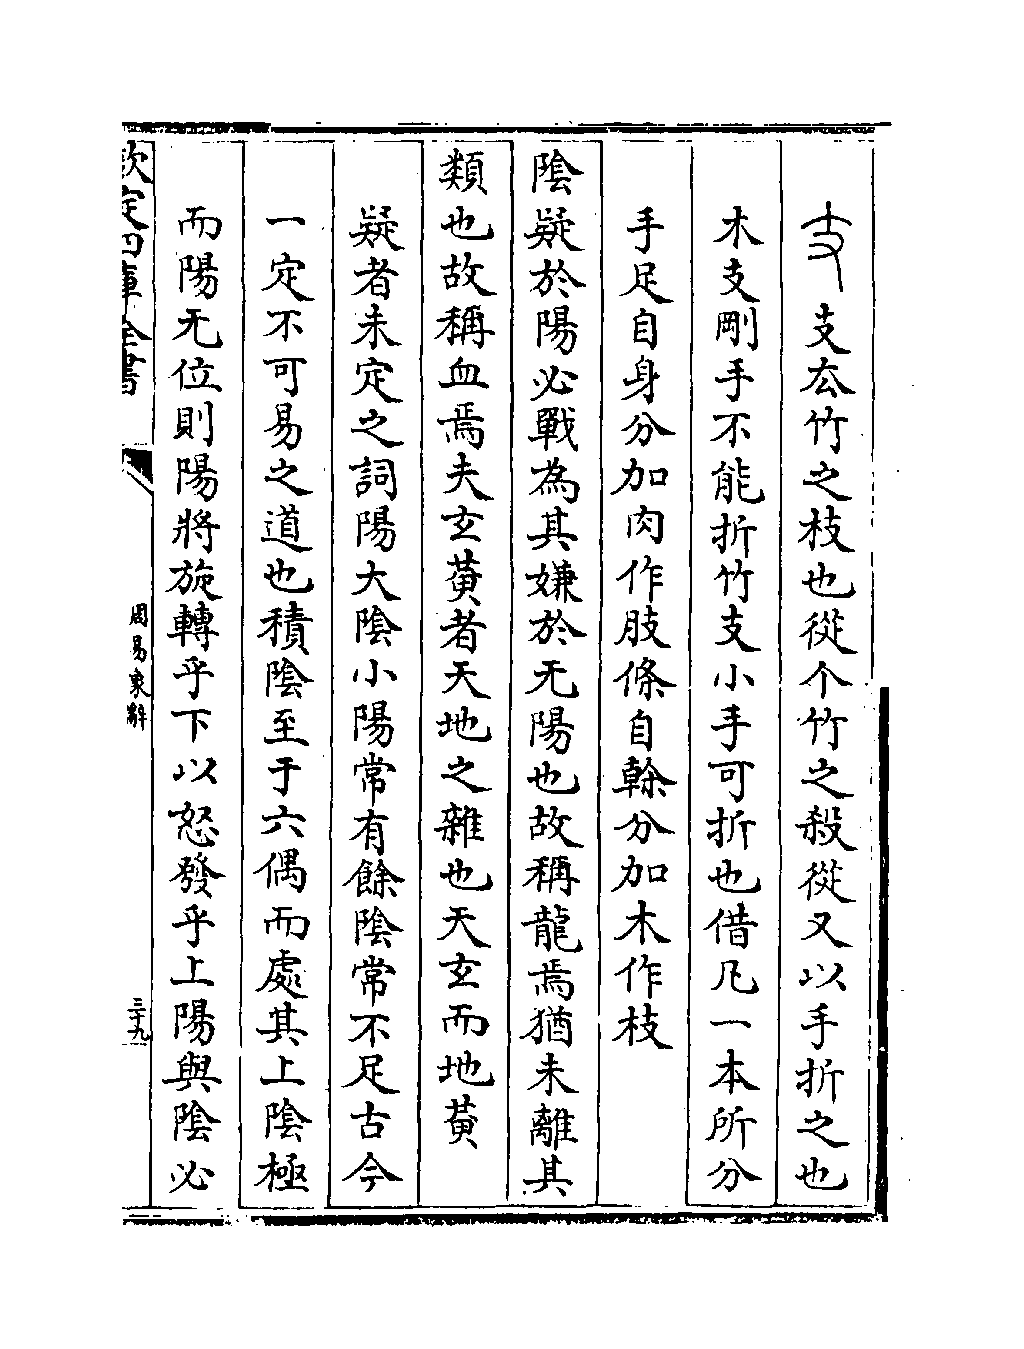 支厺竹之枝也從个竹之殺從又以手折之也
木支剛手不能折竹支小手可折也借凡一本所分
手足自身分加肉作肢條自榦分加木作枝
陰疑於陽必戰為其嫌於无陽也故稱龍焉猶未離其
類也故稱血焉夫玄黄者天地之雜也天玄而地黄
疑者未定之詞陽大陰小陽常有餘陰常不足古今
一定不可易之道也積陰至于六偶而處其上陰極
而陽无位則陽將旋轉乎下以怒發乎上陽與陰必
欽定四庫全書
周易象辭
三十九